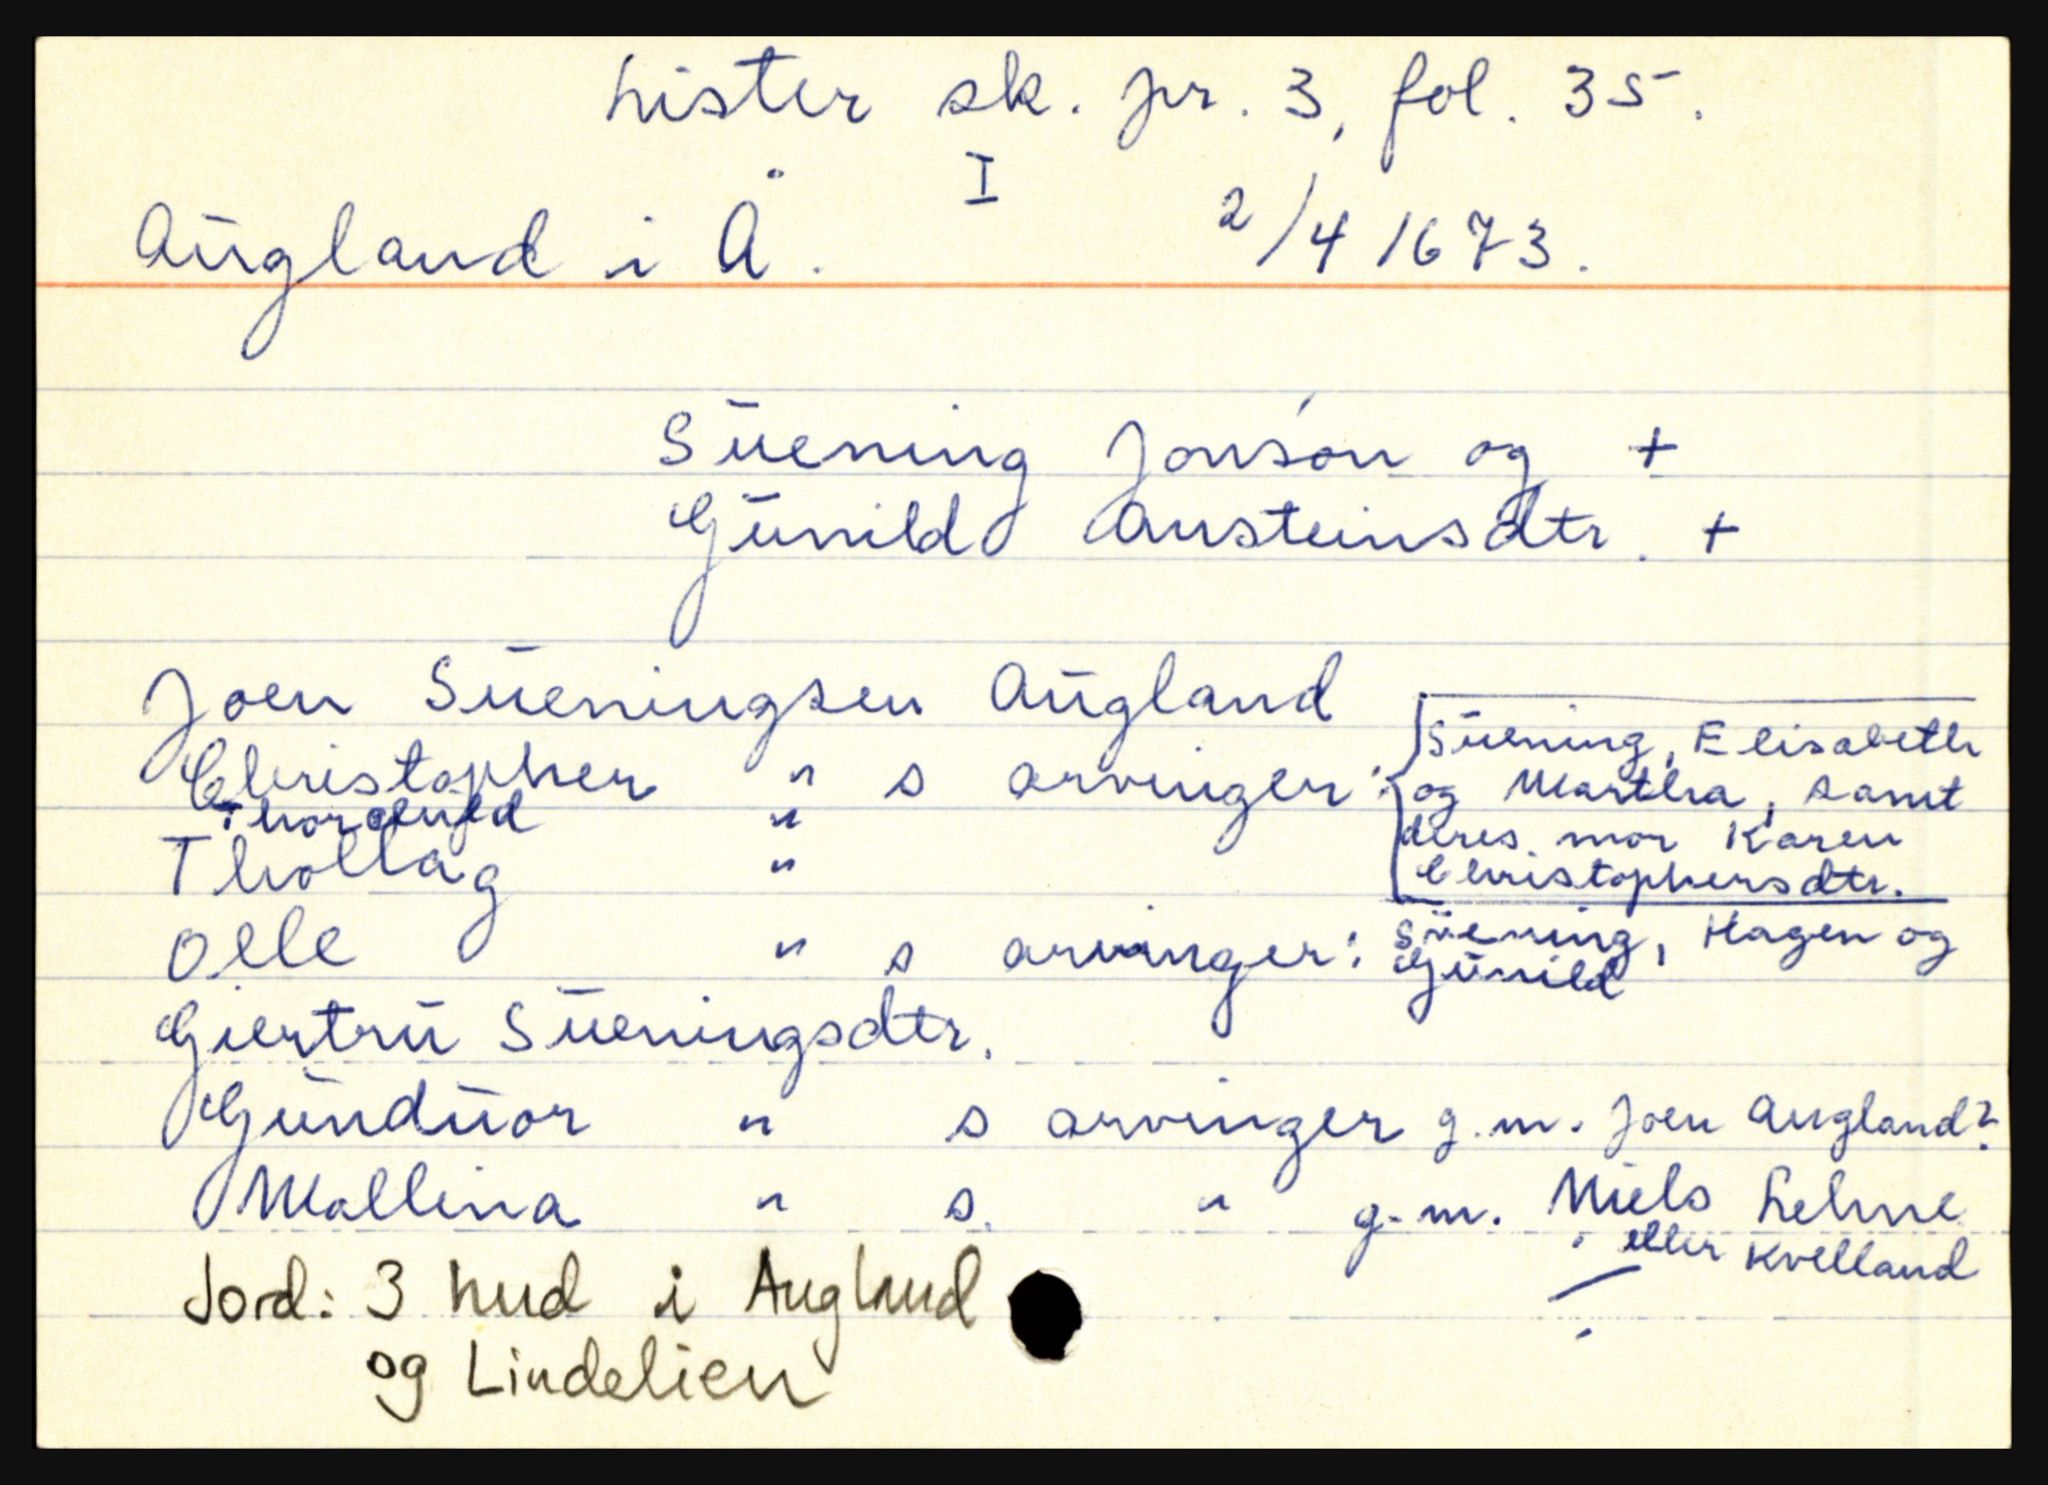 Lister sk. pr. 3, fol. 35.
I
Augland i Å. 2/4 1673.
Suening Jonsøn og +
Gunild Austeinsdtr. +
Joen Sueningsen Augland
Christopher " s arvinger: Suening, Elisabeth
og Martha, samt
deres mor Karen
Christophersdtr.
"
Thollag "
Olle " s arvinger: Suening, Hagen og
Gunild
Giertru Sueningsdtr.
Gunduor " s arvinger g.m. Joen Augland?
Mallina " s. " g.m. Niels Lehne
eller Kvelland
Jord: 3 hud i Augland
og Lindelien